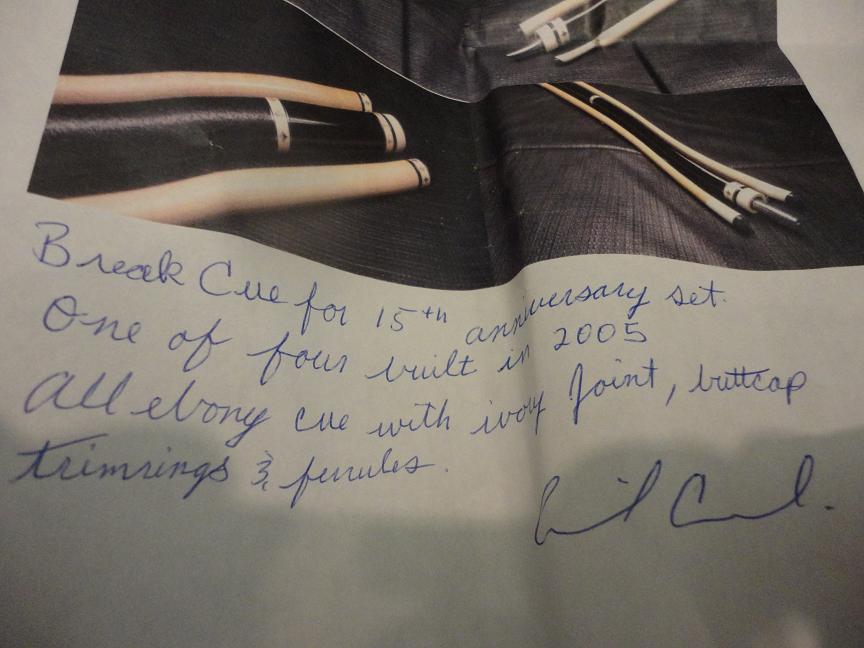 Break Cue for 15th anniversary set.
One of four built in 2005
All ebony cue with ivory joint, buttcap
trimrings & ferrules.